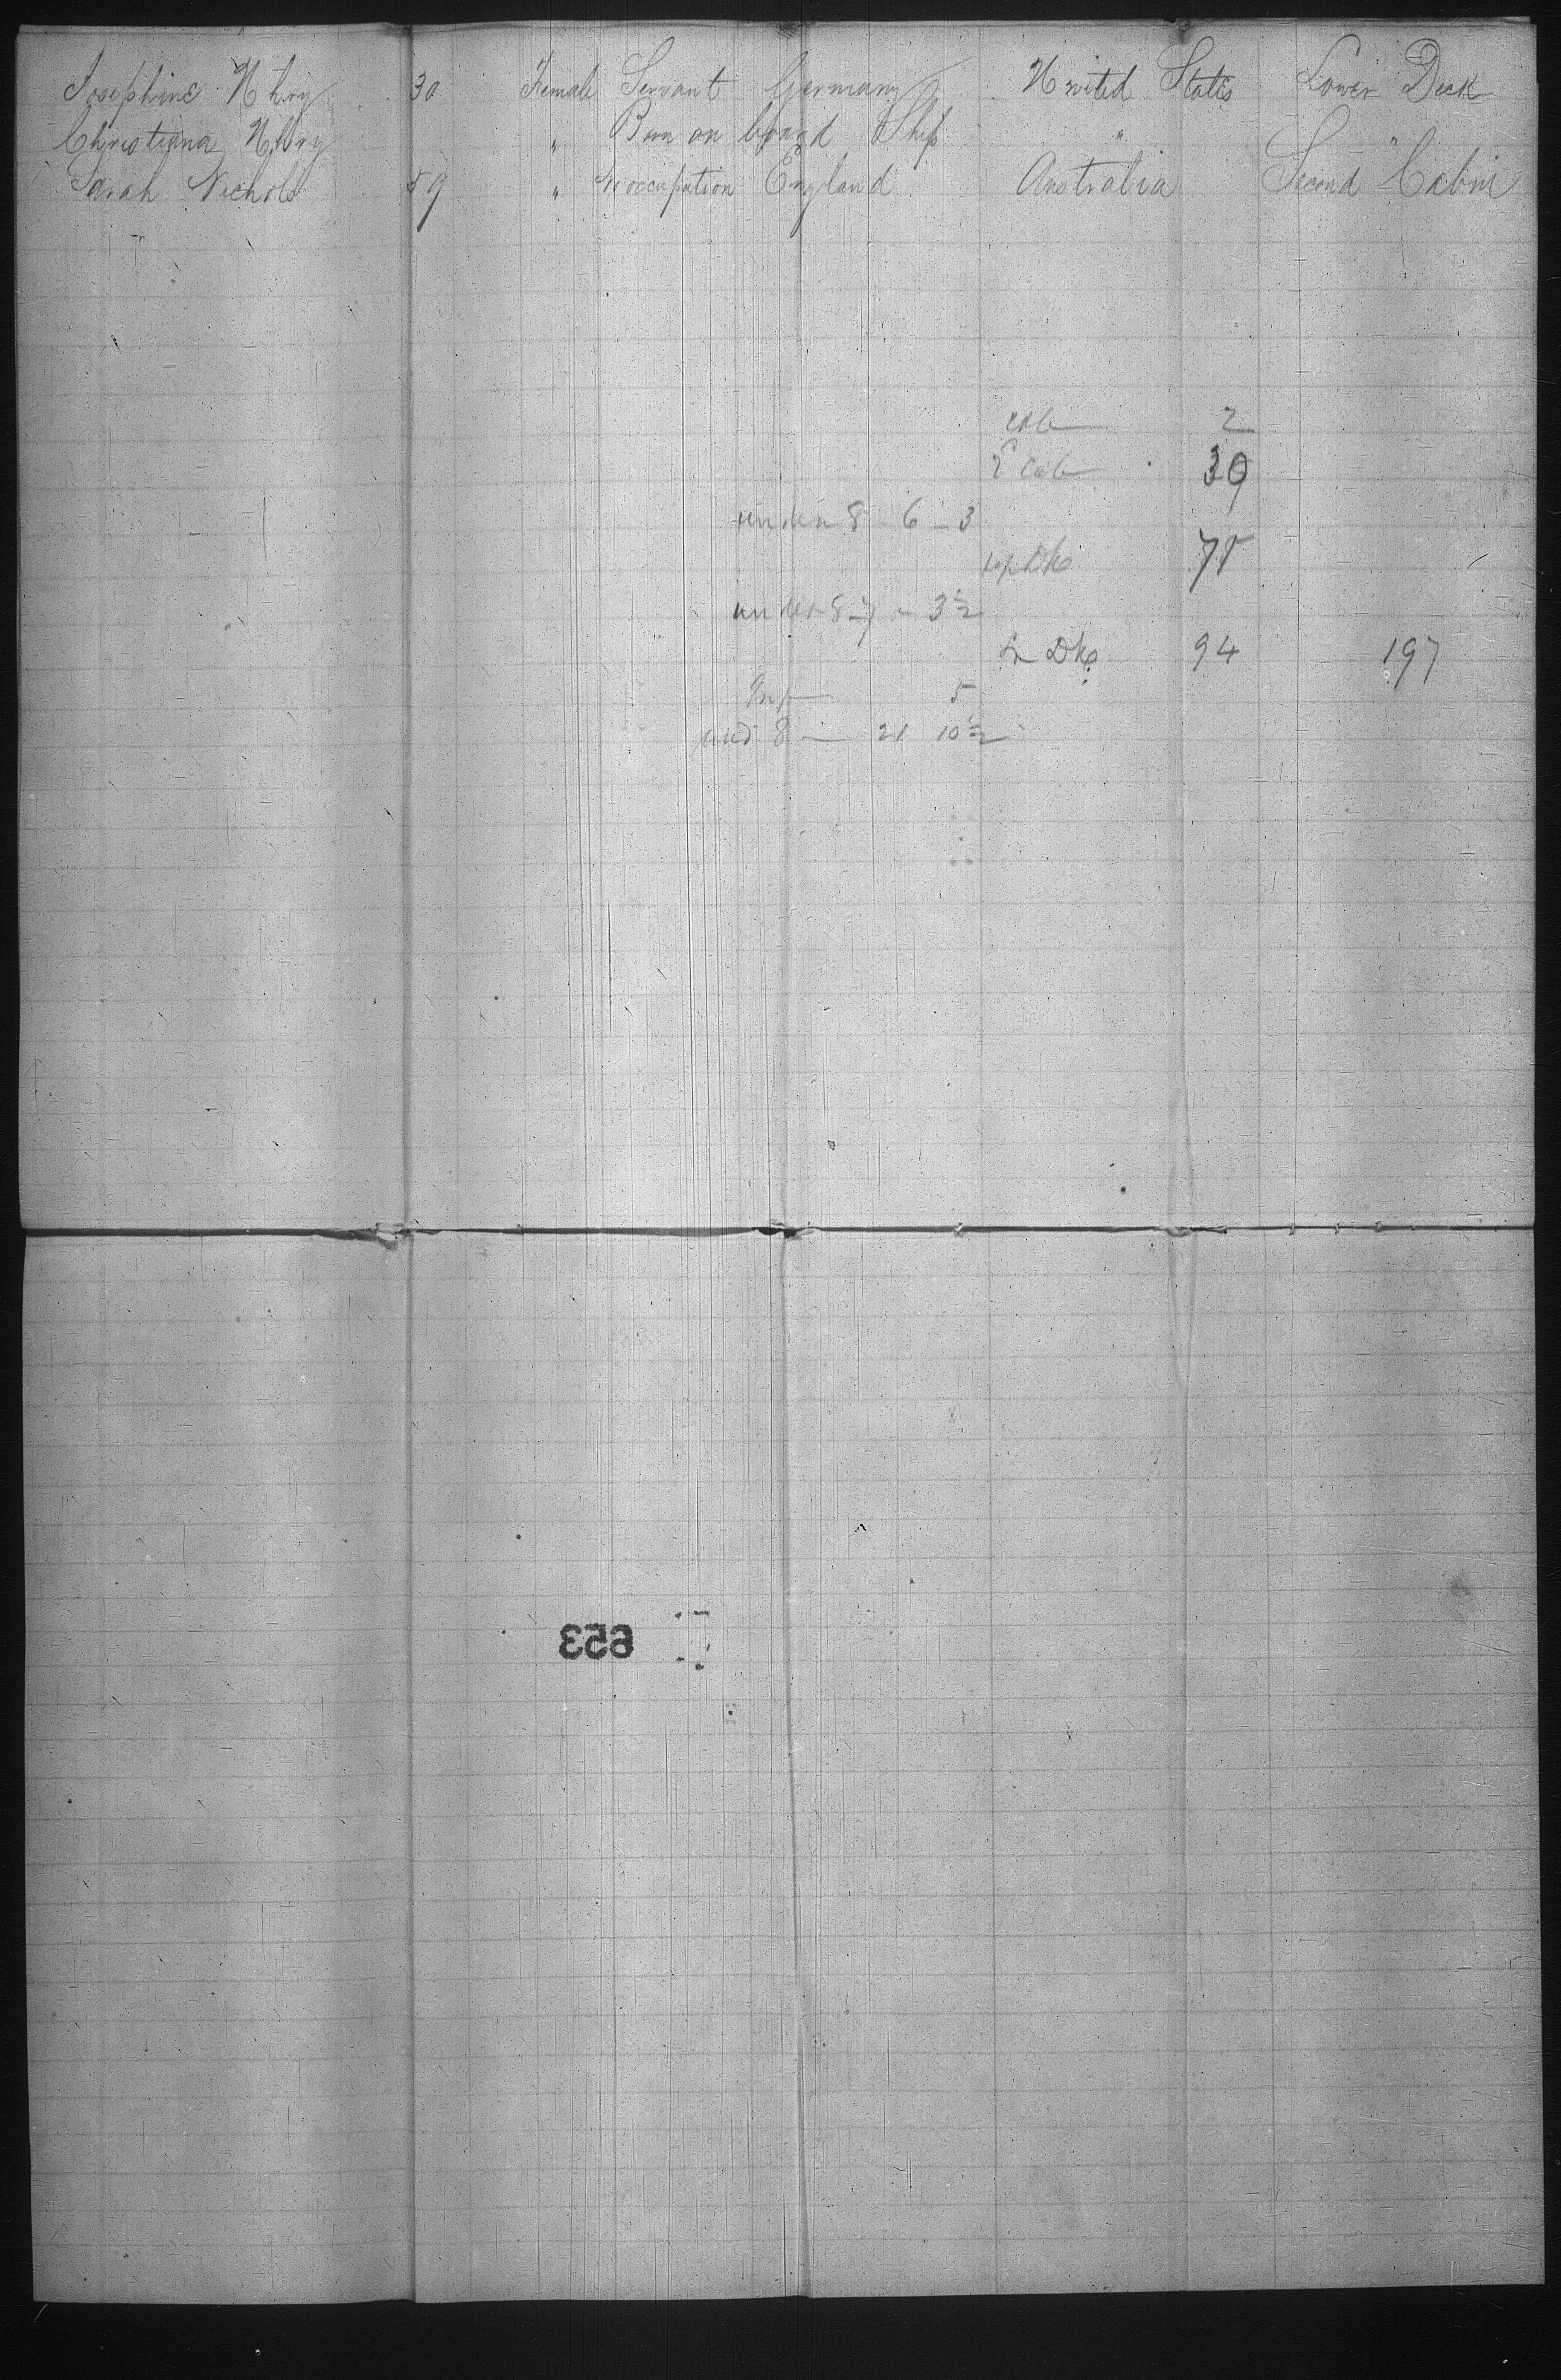 Josephine Uhry 30 Female Servant Germany United States Lower Deck
Christiana Uhry " Born on board Ship " "
Sarah Nichols 59 " No occupation England Australia Second Cabin
cab 2
2 Cab 39
under 8 6 - 3
Dks 75
under 8 7 - 3½
Dks 94 197
Inf 5
und 8 — 21 10½
653